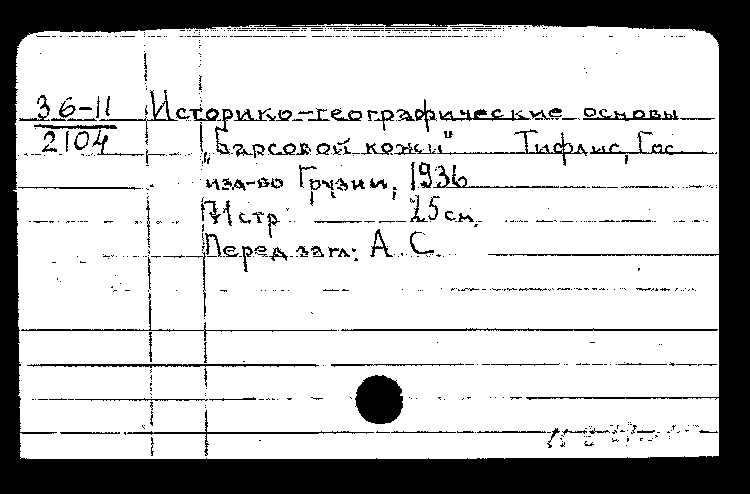 36-11 Историко-географические основы
2104 „Барсовой кожи" Тифлис, Гос
изд-во Грузии, 1936
71 стр 25 см.
Перед загл: А. С.